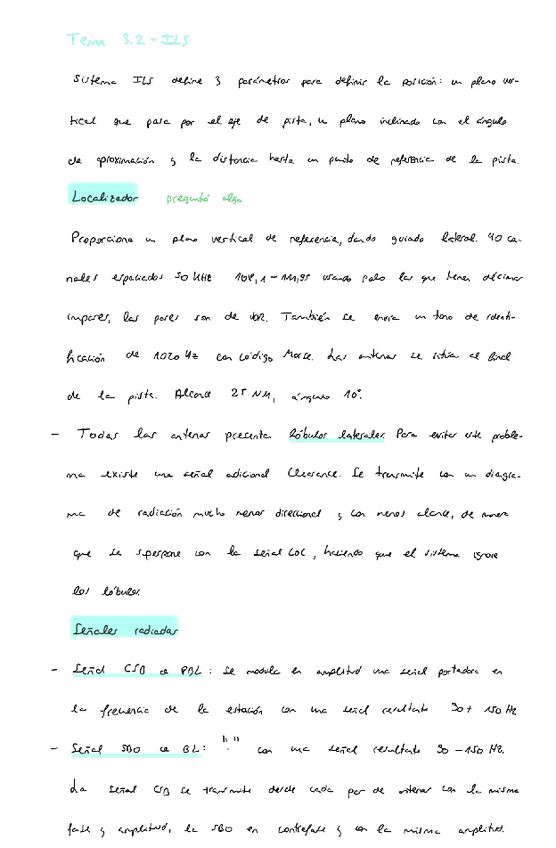 Tema 3.2 - ILS
Sistema ILS define 3 parámetros para definir la posición: un plano ver-
tical que pasa por el eje de pista, un plano inclinado con el ángulo
de aproximación y la distancia hasta un punto de referencia de la pista.
Localizador preguntó algo
Proporciona un plano vertical de referencia, dando guiado lateral. 40 ca-
nales espaciados 50 kHz 108,1 - 111,95 usando solo las que tienen décimas
impares, las pares son de VOR. También se envía un tono de identi-
ficación de 1020 Hz con código Morse. Las antenas se sitúa al final
de la pista. Alcance 25 NM, ángulo 10°.
- Todas las antenas presenta lóbulos laterales. Para evitar este proble-
ma existe una señal adicional Clearance. Se transmite con un diagra-
ma de radiación mucho menos direccional y con menos alcance, de manera
que se superpone con la señal LOC, haciendo que el sistema ignore
los lóbulos.
Señales radiadas
- Señal CSB o PBL: Se modula en amplitud una señal portadora en
la frecuencia de la estación con una señal resultante 90 + 150 Hz
- Señal SBO o BL: " " con una señal resultante 90 - 150 Hz.
La señal CSB se transmite desde cada par de antenas con la misma
fase y amplitud, la SBO en contrafase y con la misma amplitud.